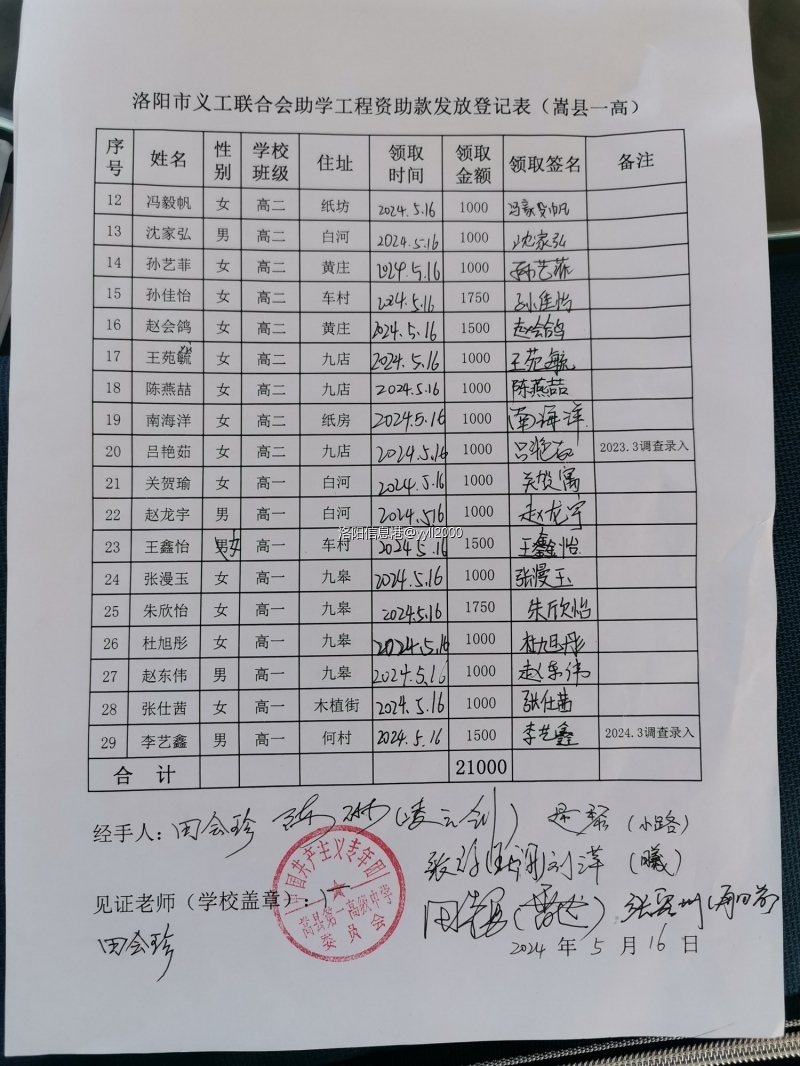 洛阳市义工联合会助学工程资助款发放登记表（嵩县一高）
序号 姓名 性别 学校班级 住址 领取时间 领取金额 领取签名 备注
12 冯毅帆 女 高二 纸坊 2024.5.16 1000 冯毅帆
13 沈家弘 男 高二 白河 2024.5.16 1000 沈家弘
14 孙艺菲 女 高二 黄庄 2024.5.16 1000 孙艺菲
15 孙佳怡 女 高二 车村 2024.5.16 1750 孙佳怡
16 赵会鸽 女 高二 黄庄 2024.5.16 1500 赵会鸽
17 王苑毓 女 高二 九店 2024.5.16 1000 王苑毓
18 陈燕喆 女 高二 九店 2024.5.16 1000 陈燕喆
19 南海洋 女 高二 纸房 2024.5.16 1000 南海洋
20 吕艳茹 女 高二 九店 2024.5.16 1000 吕艳茹 2023.3调查录入
21 关贺瑜 女 高一 白河 2024.5.16 1000 关贺瑜
22 赵龙宇 男 高一 白河 2024.5.16 1000 赵龙宇
洛阳信息港@yyll2000
23 王鑫怡 男女 高一 车村 2024.5.16 1500 王鑫怡
24 张漫玉 女 高一 九皋 2024.5.16 1000 张漫玉
25 朱欣怡 女 高一 九皋 2024.5.16 1750 朱欣怡
26 杜旭彤 女 高一 九皋 2024.5.16 1000 杜旭彤
27 赵东伟 男 高一 九皋 2024.5.16 1000 赵东伟
28 张仕茜 女 高一 木植街 2024.5.16 1000 张仕茜
29 李艺鑫 男 高一 何村 2024.5.16 1500 李艺鑫 2024.3调查录入
合 计 21000
经手人：田会珍 （凌云剑） （小路）
刘萍（曦）
见证老师（学校盖章）：
中国共产主义青年团
嵩县第一高级中学
委员会
田会珍
2024 年 5 月 16 日